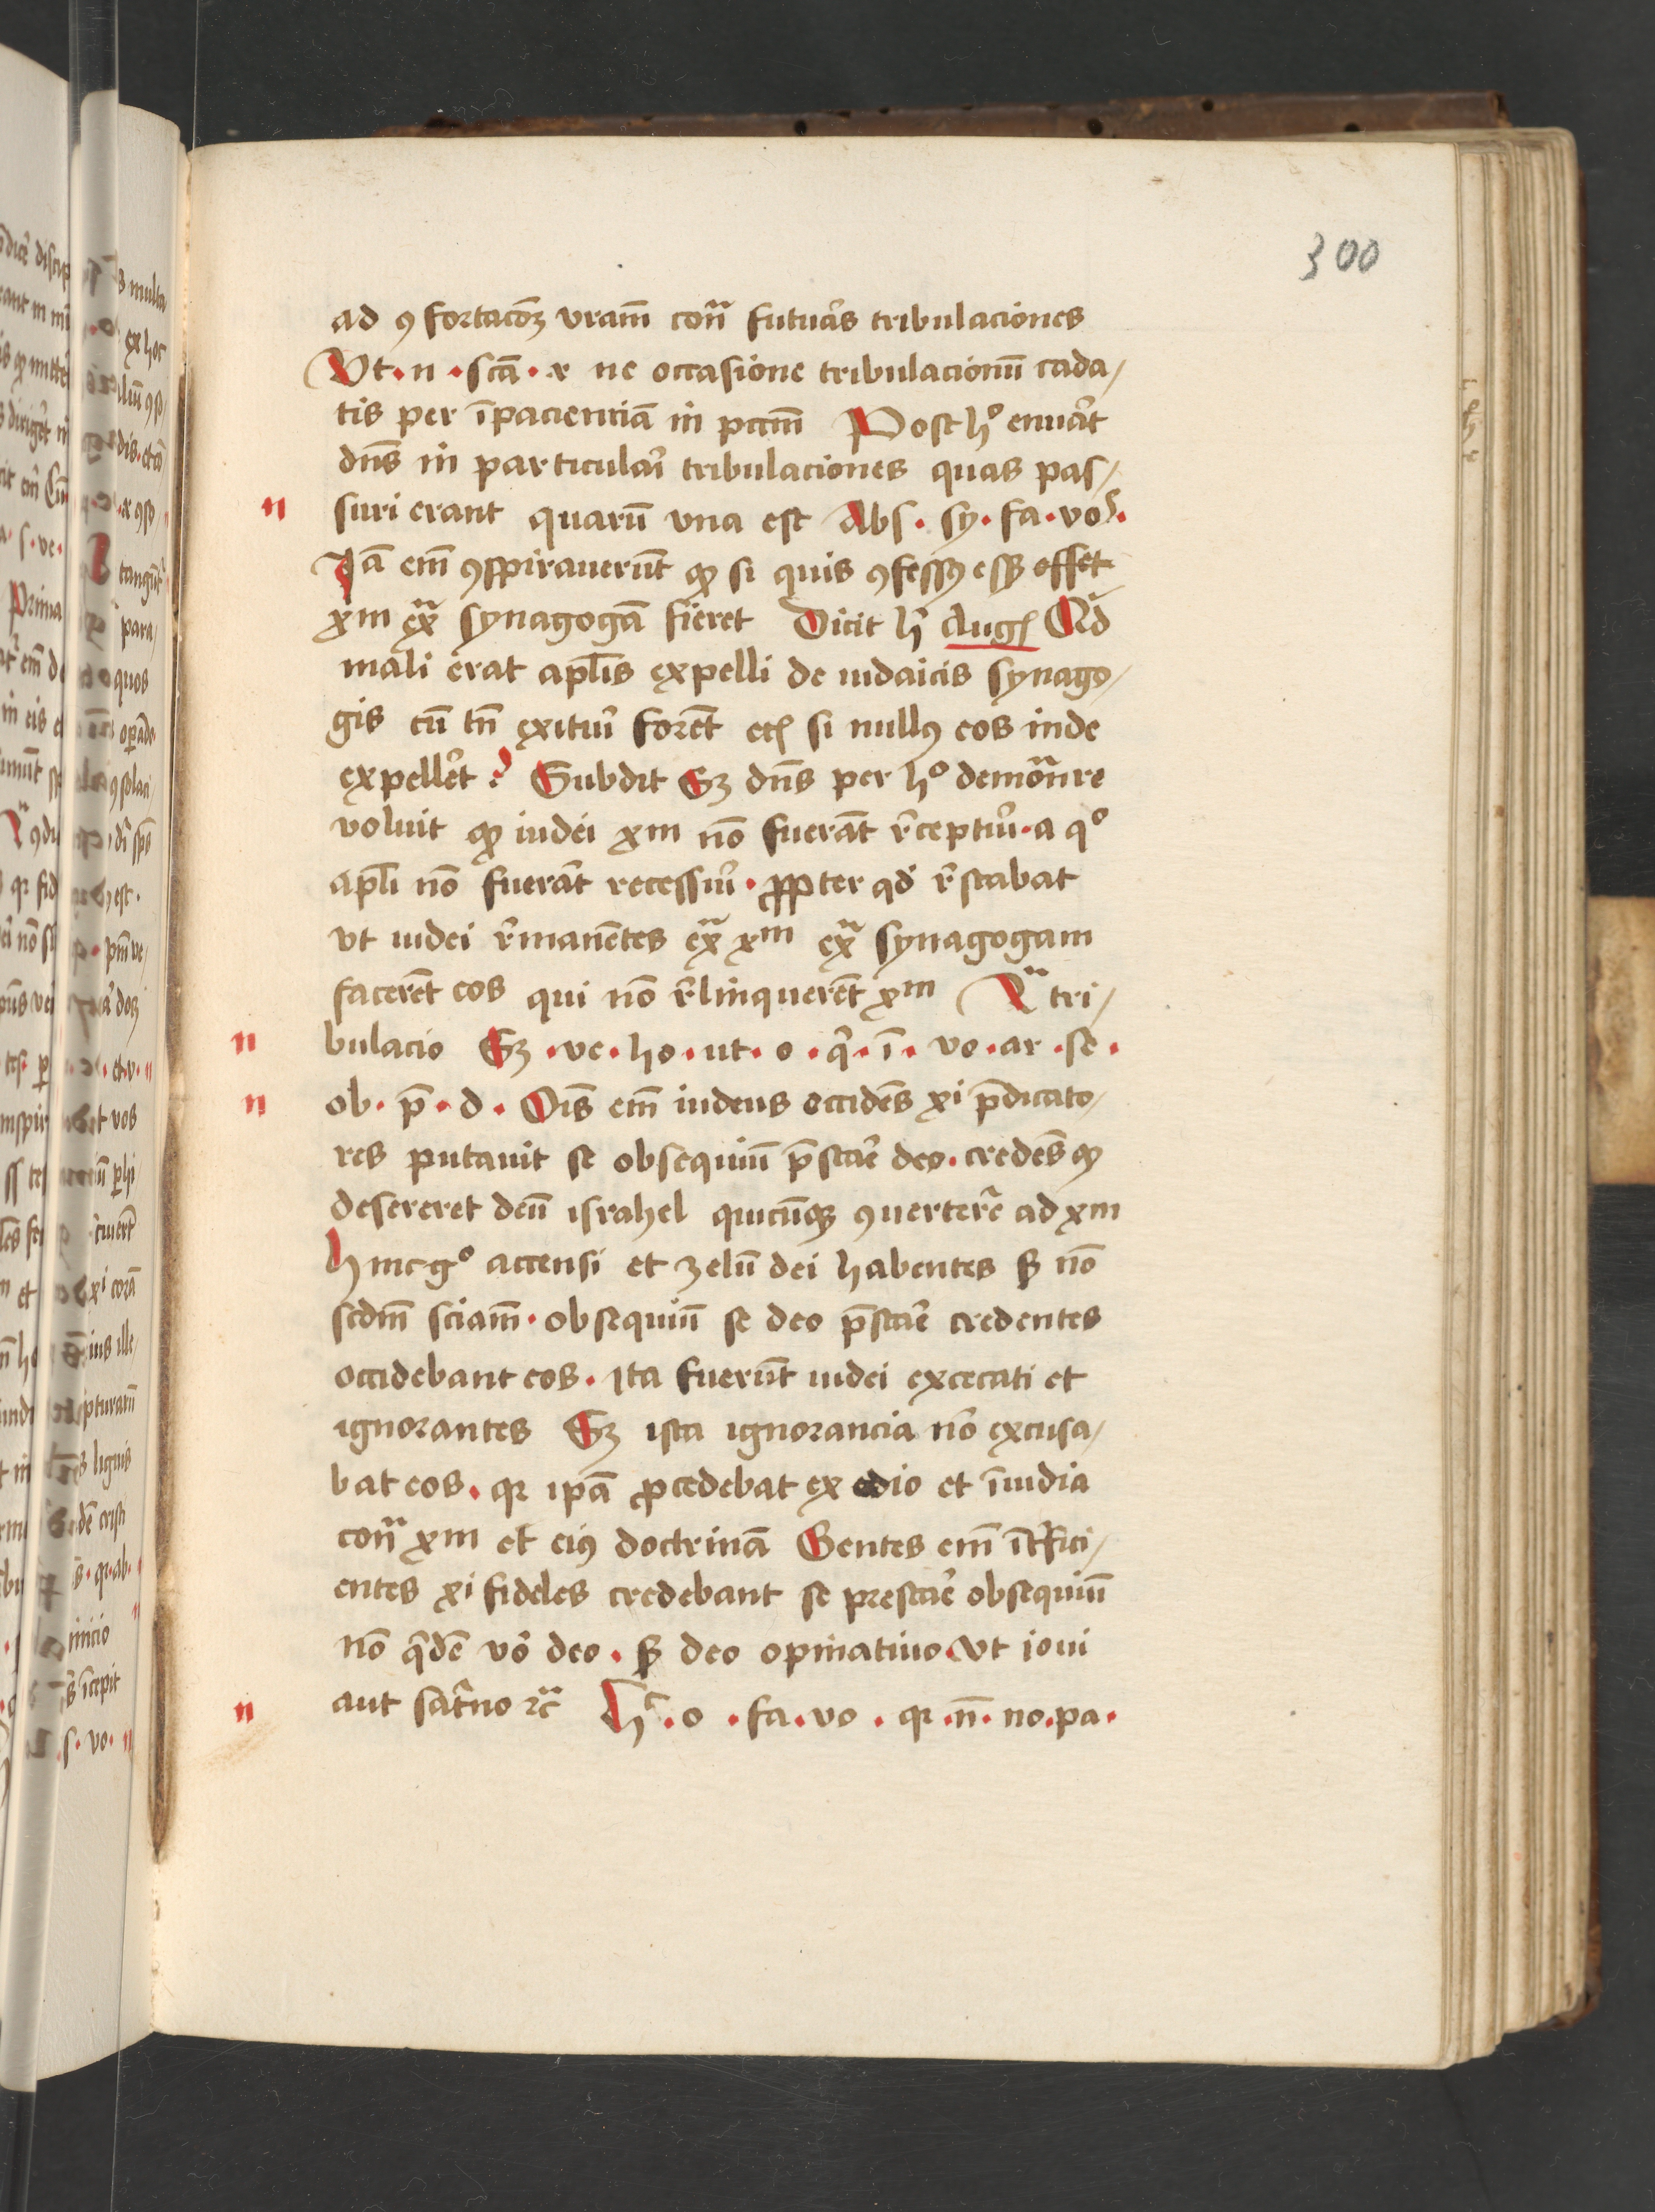 300
ad ꝯfortacōꝫ vram̄ conͣ futuãs tribulaciones
Vt · n · scā · r ne occasione tribulacionū cada/
tis per īpacienciā in pccm̄ Post hͦ enuãt
dn̄s in particulaĩ tribulaciones quas pas/
n suri erant quarū vna est Abs · sy · fa · vo ·
Iā em̄ ꝯspirauerūt ꝙ si quis ꝯfessꝯ
xm exͣ synagogā fieret Dicit hͥ Augꝭ
mali erat apl̄is expelli de iudaicis synago/
gis cū tn̄ exituĩ forēt ecꝭ si nullꝯ eos inde
expellẽt ? Subdit Sꝫ dn̄s per hͦ demonͣre
voluit ꝙ iudei xm nō fuerāt r̃ceptuĩ · a qͦ
apl̄i nō fuerāt recessuĩ · ꝓpter qd̃ r̃stabat
vt iudei r̃manētes exͣ xm exͣ synagogam
facerēt eos qui nō r̃linquerēt xm tri/
n bulacio Sꝫ · ve · ho · ut · o · q̃ · ī · vo · ar · se ·
n ob · p̄ · d · Oīs em̄ iudeus occidēs xi p̄dicato/
res putauit se obsequiū p̄staẽ deo · credēs ꝙ
desereret deū israhel quicūqꝫ ꝯuertereͣ ad xm
hinc gͦ accensi et zelū dei habentes ß nō
scdm̄ sciam̄ · obsequiū se deo p̄staẽ credentes
occidebant eos · Ita fuerūt iudei excecati et
ignorantes Sꝫ ista ignorancia nō excusa/
bat eos · qꝛ ipā ꝓcedebat ex odio et īuidia
conͣ xm et eiꝯ doctrinā Gentes em̄ īt̃fici/
entes xi fideles credebant se prestaẽ obsequiū
nō q̄dē vō deo · ß deo opinatiuo · vt ioui
n aut sat̃no ⁊cͣ hͨ · o · fa · vo · qꝛ · n̄ · no · pa ·